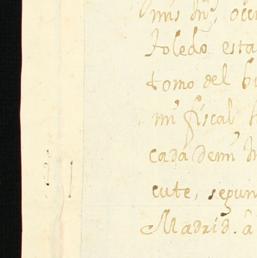 mis dhõ, ocu
Toledo esta
tomo del bu
mi fiscal h
cada demi M
cute, segun
Madrid. â